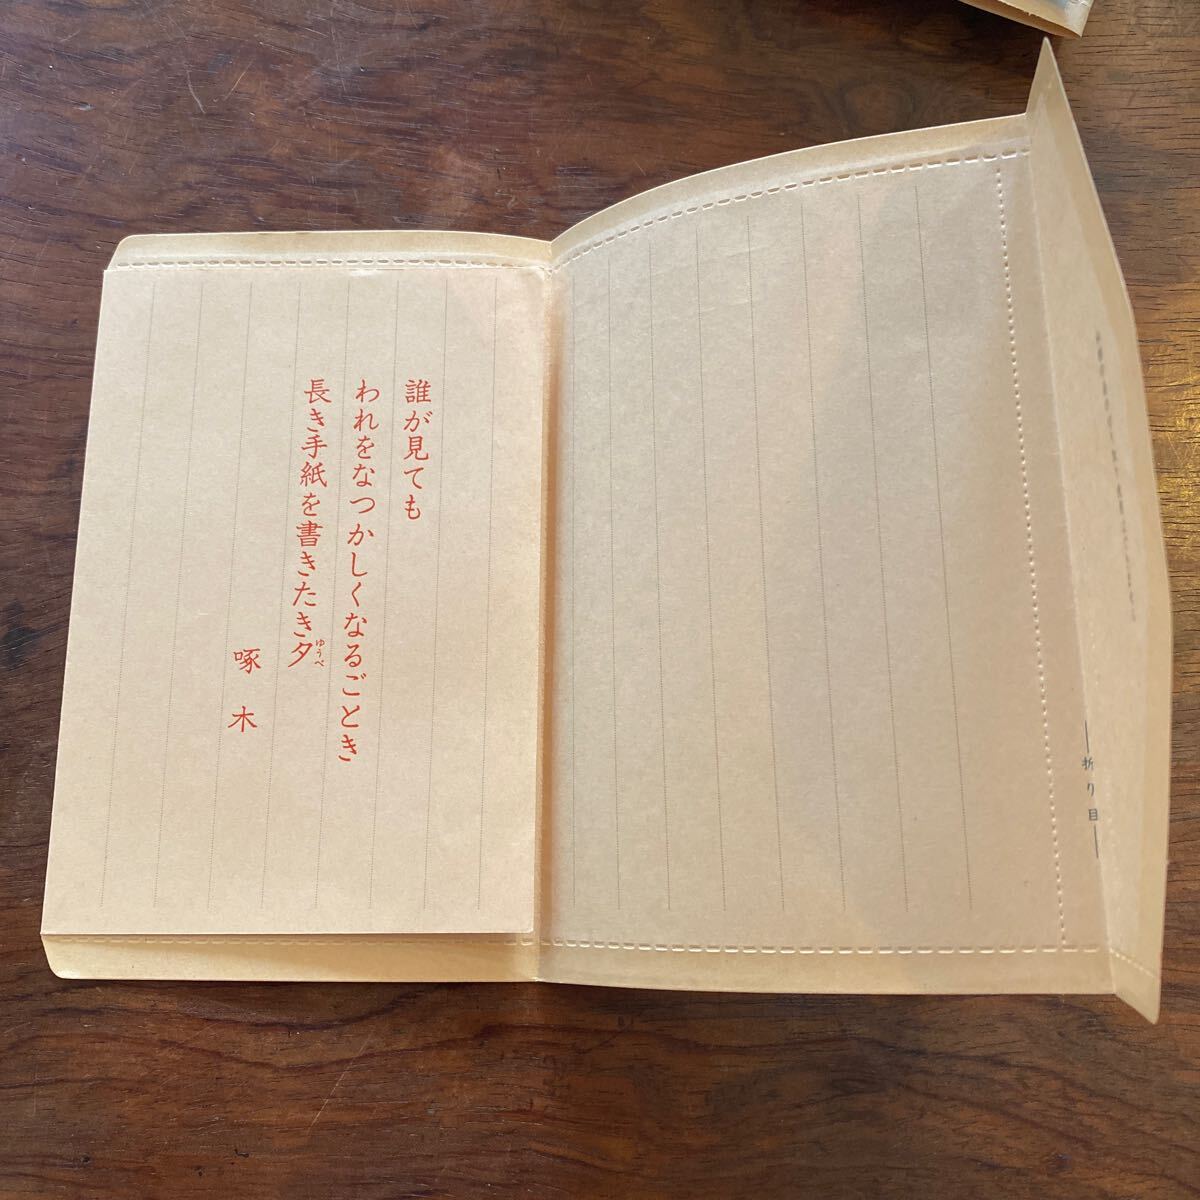 誰が見ても
われをなつかしくなるごとき
長き手紙を書きたき夕
ゆうべ
啄木
折り目